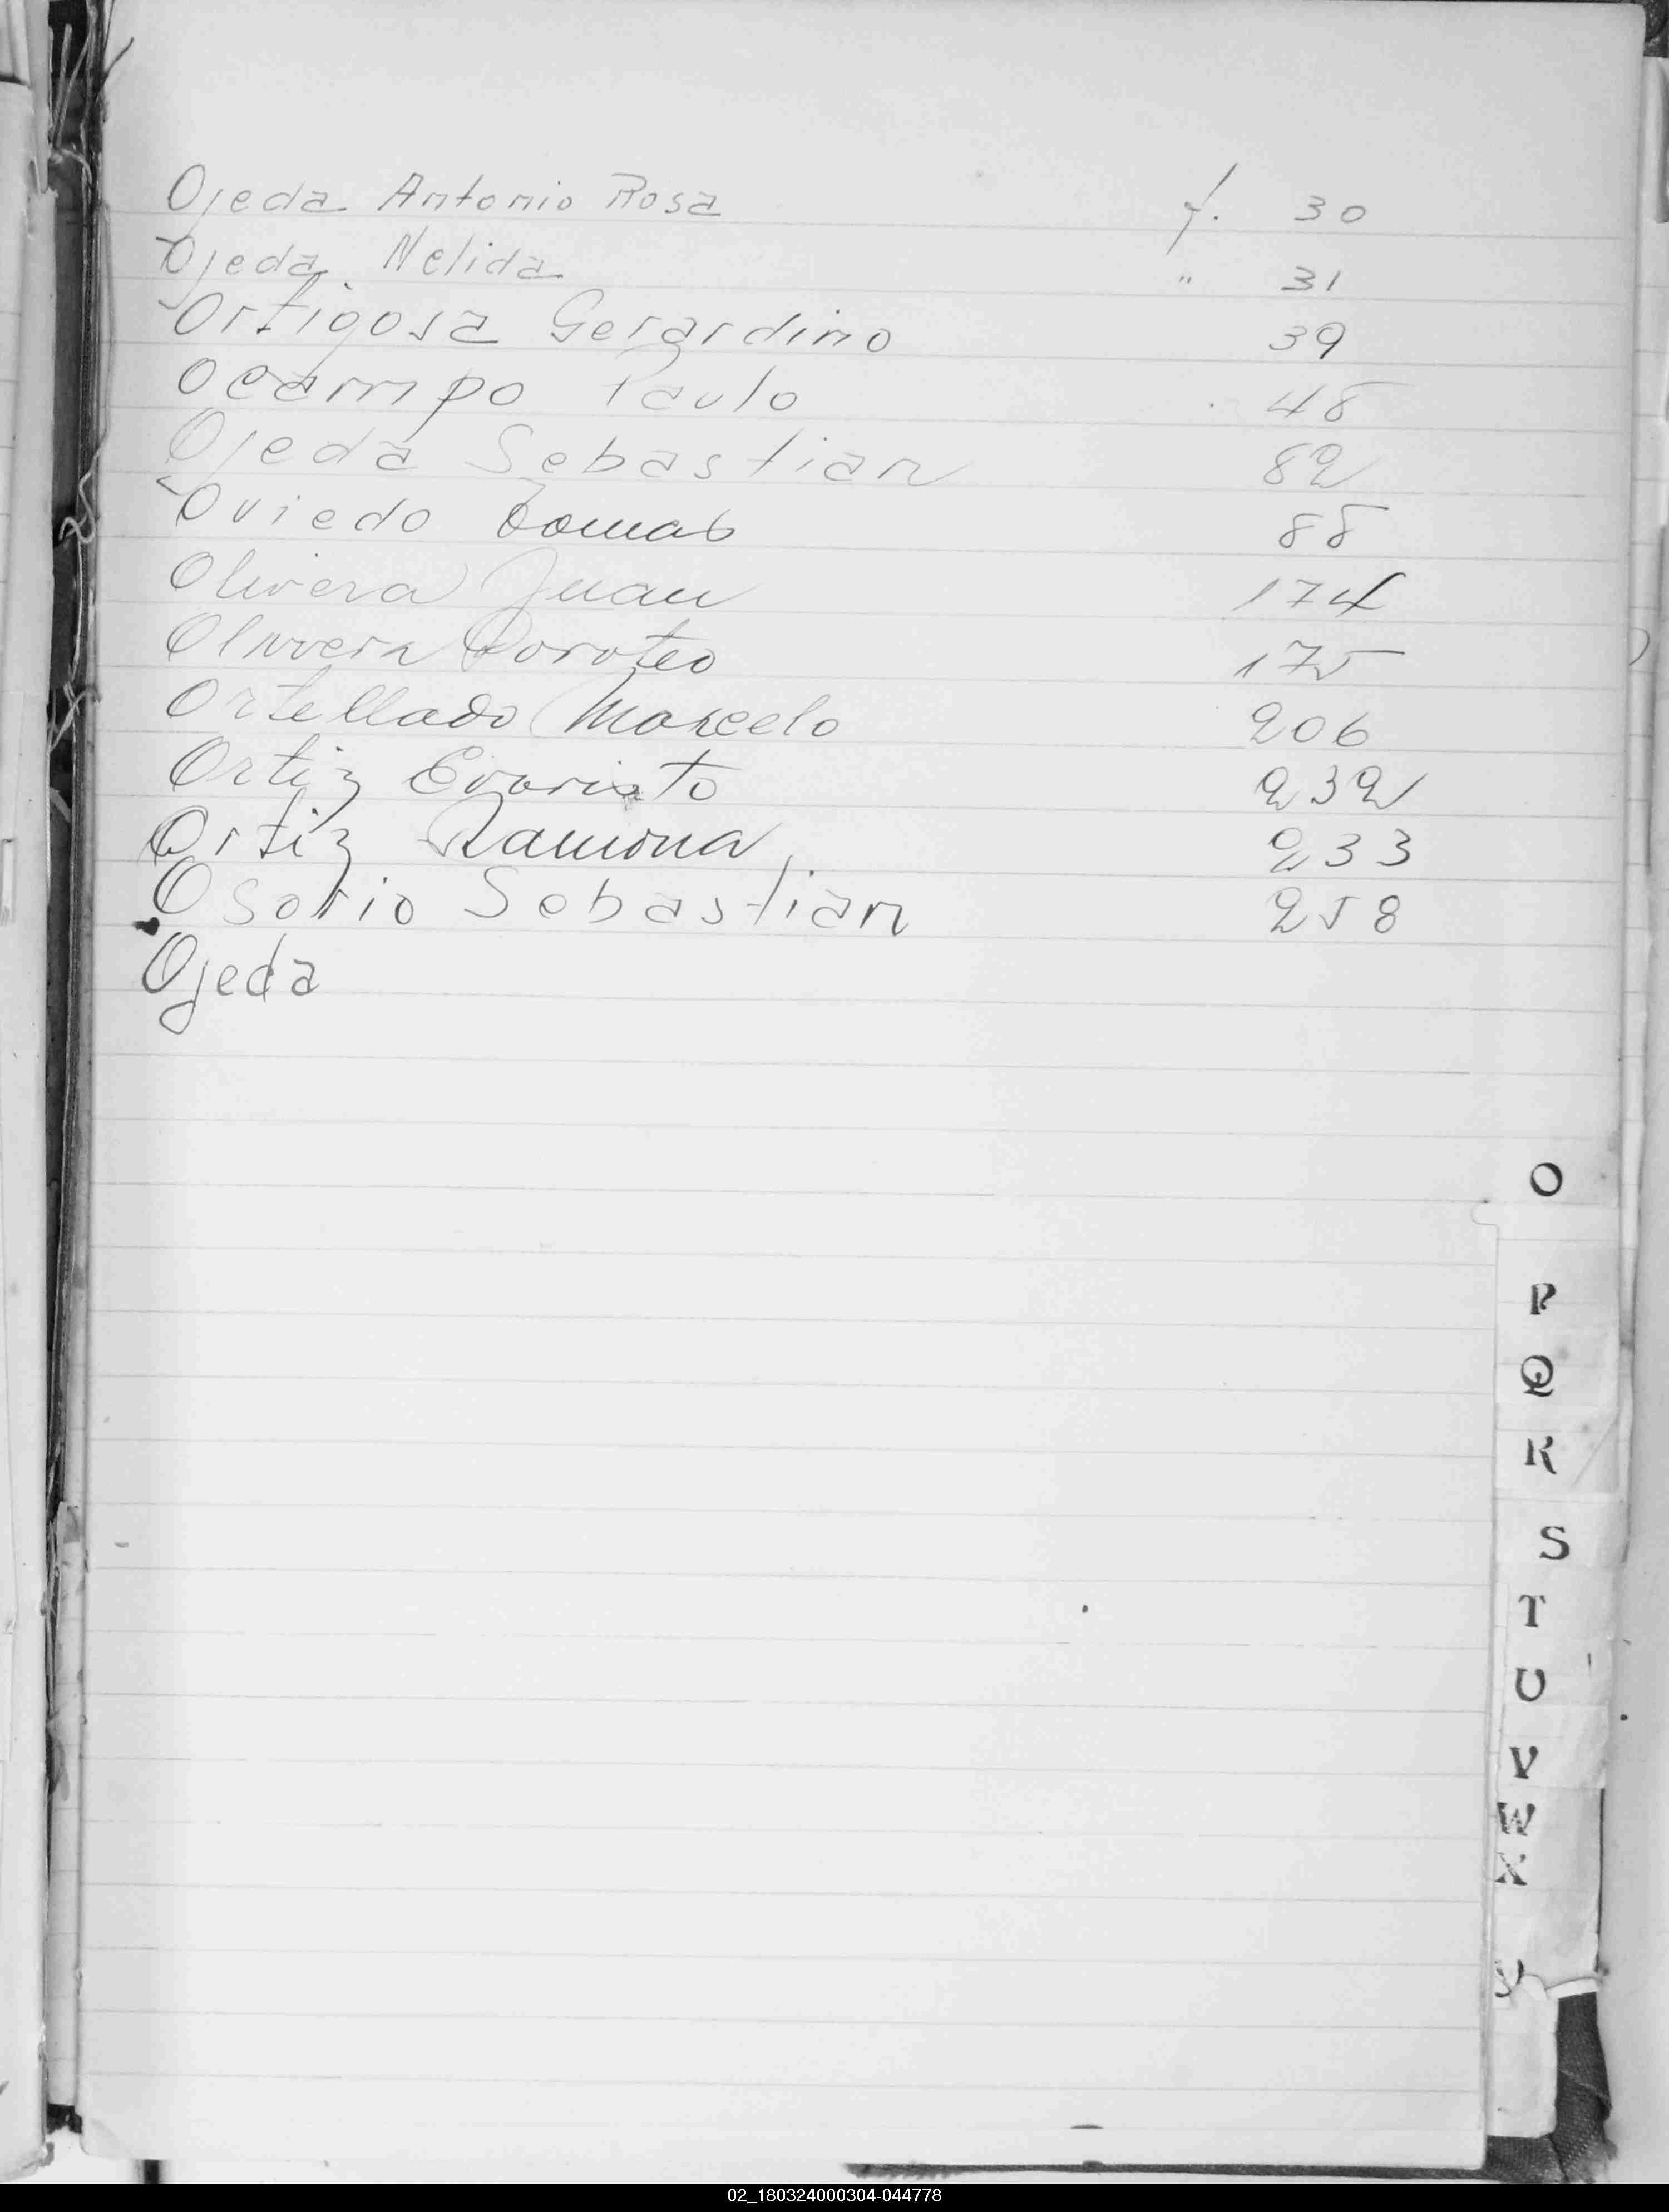 Ojeda Antonio Rosa f. 30
Ojeda Nelida " 31
Ortigosa Gerardino 39
Ocampo Paulo 48
Ojeda Sebastian 82
Oviedo Tomas 88
Olivera Juan 174
Olivera Doroteo 175
Ortellado Marcelo 206
Ortiz Evaristo 232
Ortiz Ramona 233
Osorio Sebastian 258
Ojeda
O
P
Q
R
S
T
U
V
W
X
02_180324000304-044778